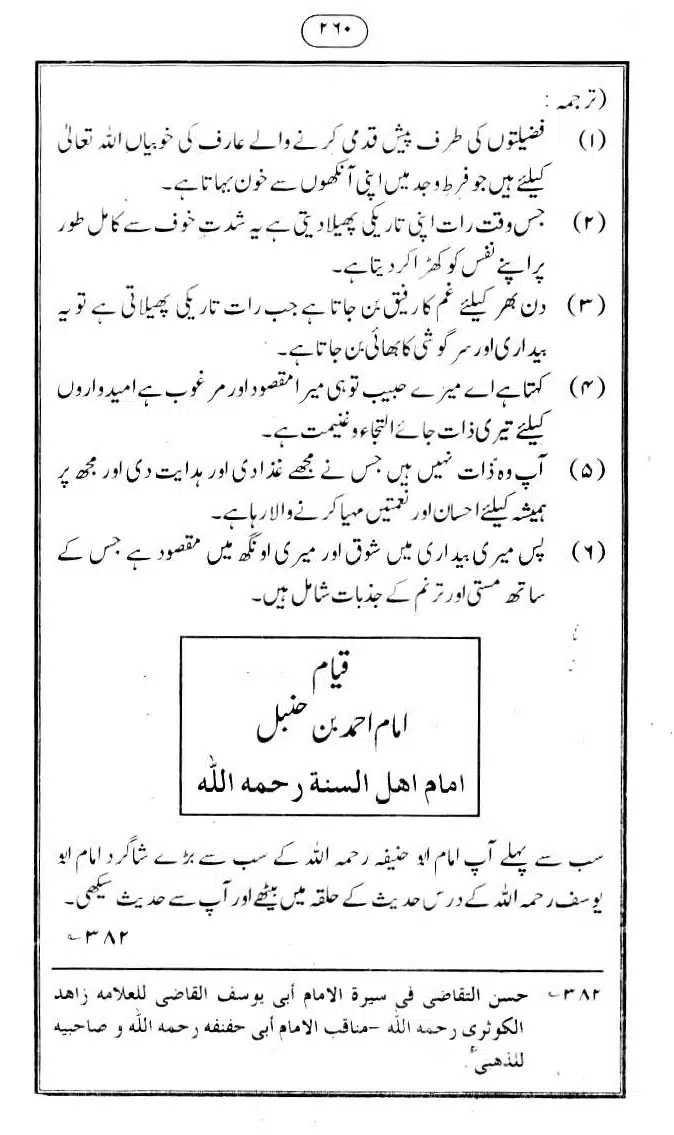 ۲۶۰
(ترجمہ :
(۱) فضیلتوں کی طرف پیش قدمی کرنے والے عارف کی خوبیاں اللہ تعالیٰ
کیلئے ہیں جو فرطِ وجد میں اپنی آنکھوں سے خون بہاتا ہے۔
(۲) جس وقت رات اپنی تاریکی پھیلا دیتی ہے یہ شدتِ خوف سے کامل طور
پر اپنے نفس کو کھڑا کر دیتا ہے۔
(۳) دن بھر کیلئے غم کا رفیق بن جاتا ہے جب رات تاریکی پھیلاتی ہے تو یہ
بیداری اور سرگوشی کا بھائی بن جاتا ہے۔
(۴) کہتا ہے اے میرے حبیب تو ہی میرا مقصود اور مرغوب ہے امیدواروں
کیلئے تیری ذات جائے التجاء و غنیمت ہے۔
(۵) آپ وہ ذات نہیں ہیں جس نے مجھے غذا دی اور ہدایت دی اور مجھ پر
ہمیشہ کیلئے احسان اور نعمتیں مہیا کرنے والا رہا ہے۔
(۶) پس میری بیداری میں شوق اور میری اونگھ میں مقصود ہے جس کے
ساتھ مستی اور ترنم کے جذبات شامل ہیں۔
قیام
امام احمد بن حنبل
امام اھل السنة رحمه الله
سب سے پہلے آپ امام ابو حنیفہ رحمہ اللہ کے سب سے بڑے شاگرد امام ابو
یوسف رحمہ اللہ کے درس حدیث کے حلقہ میں بیٹھے اور آپ سے حدیث سیکھی۔
۳۸۲؎
۳۸۲؎ حسن التقاضی فی سیرة الامام أبی یوسف القاضی للعلامه زاهد
الکوثری رحمه الله -مناقب الامام أبی حفنفه رحمه الله و صاحبیه
للذهبی